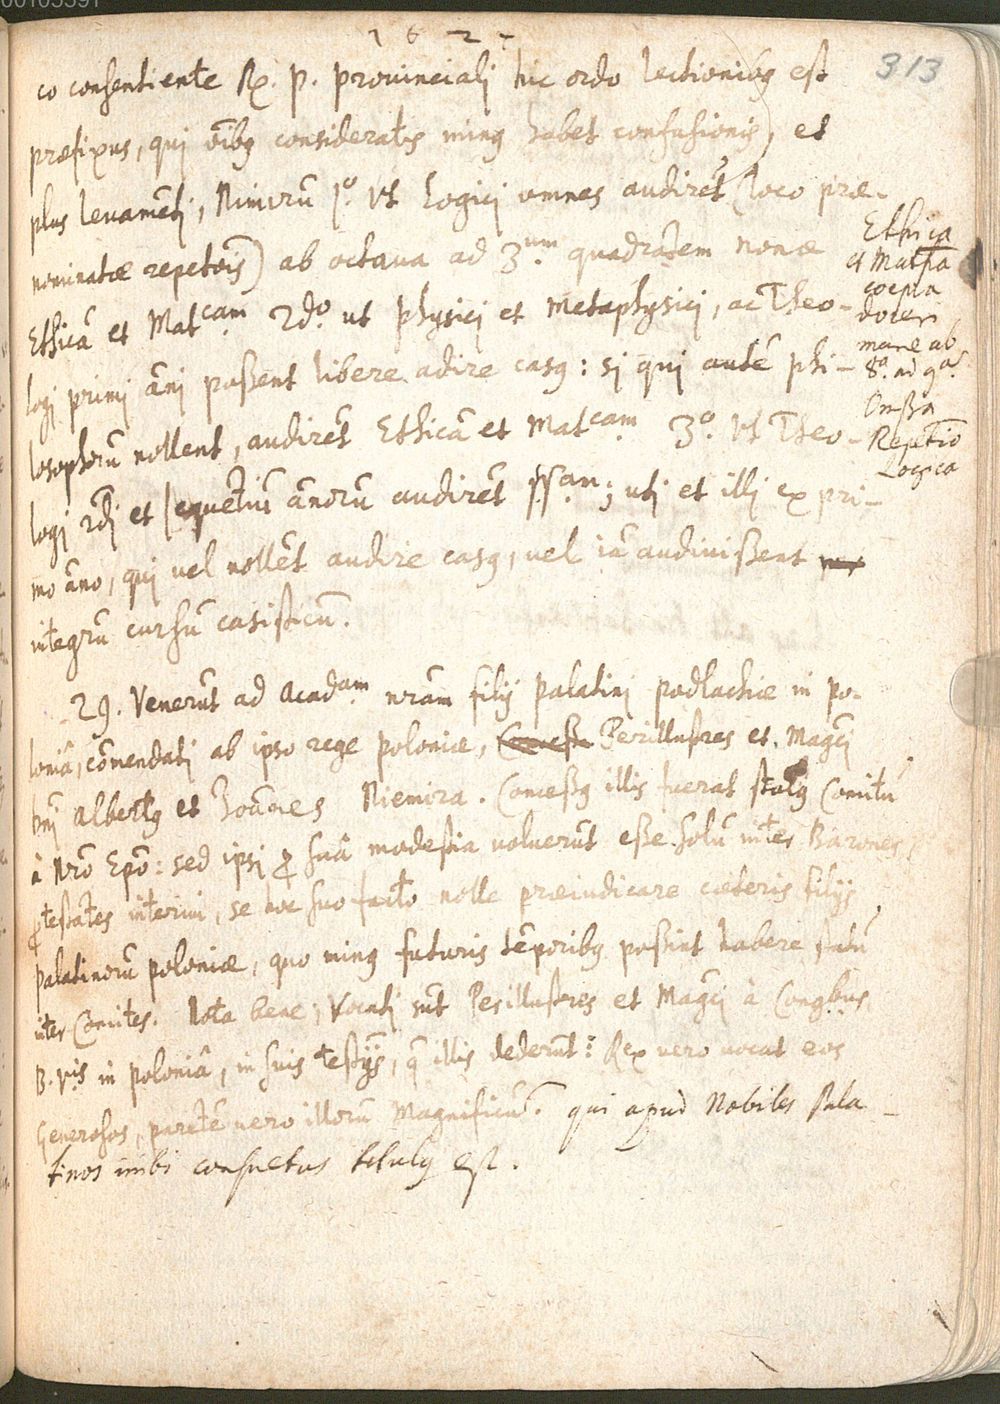 00105391
1 6 2 7
313
co consentiente R. p. prouinciali hic ordo lectionibg est
præfixus, qui oībg consideratis ming habet confusionis, et
plus leuamēti, Nimirū 1º. Vt Logici omnes audirēt (loco præ-
nominatæ repetōis) ab octaua ad 3.um quadrātem nonæ
Ethicā et Matcam 2do. ut physici et Metaphysici, ac Theo-
logi primi āni possent libere adire casg: si qui autē phi-
losophorū nollent, audirēt Ethicā et Matcam 3º. Vt Theo-
logi 2di et sequētiū ānorū audirēt ; uti et illi ex pri-
mo āno, qui vel nollēt audire casg, uel iā audiuissent
integrū cursū casisticū.
Ethica
et Matca
coepta
doceri
mane ab
8ª. ad 9ª.
Omssa
Repetiō
Logica
29. Venerūt ad Acadam nrām filij palatini podlachiæ in po-
loniâ, cōmendati ab ipso rege poloniæ, Perillustres et Magci
Dni Albertg et Joānes Niemira. Concessg illis fuerat statg Comitū
à Nrō Epō: sed ipsi ꝓ suâ modestia uoluerūt esse solū inter Barones,
ꝓtestātes interim, se hoc suo facto nolle præiudicare cæteris filijs
palatinorū poloniæ, quo ming futuris tēporibg possint habere statū
inter Comites. Nota bene; Vocati sūt Perillustres et Magci à Congbus
B. Vis in poloniâ, in suis testijs, q illis dederūt: Rex uero uocat eos
Generosos, parētē uero illorū Magnificū. qui apud Nobiles Pala-
tinos imbi consuetus titulg est.